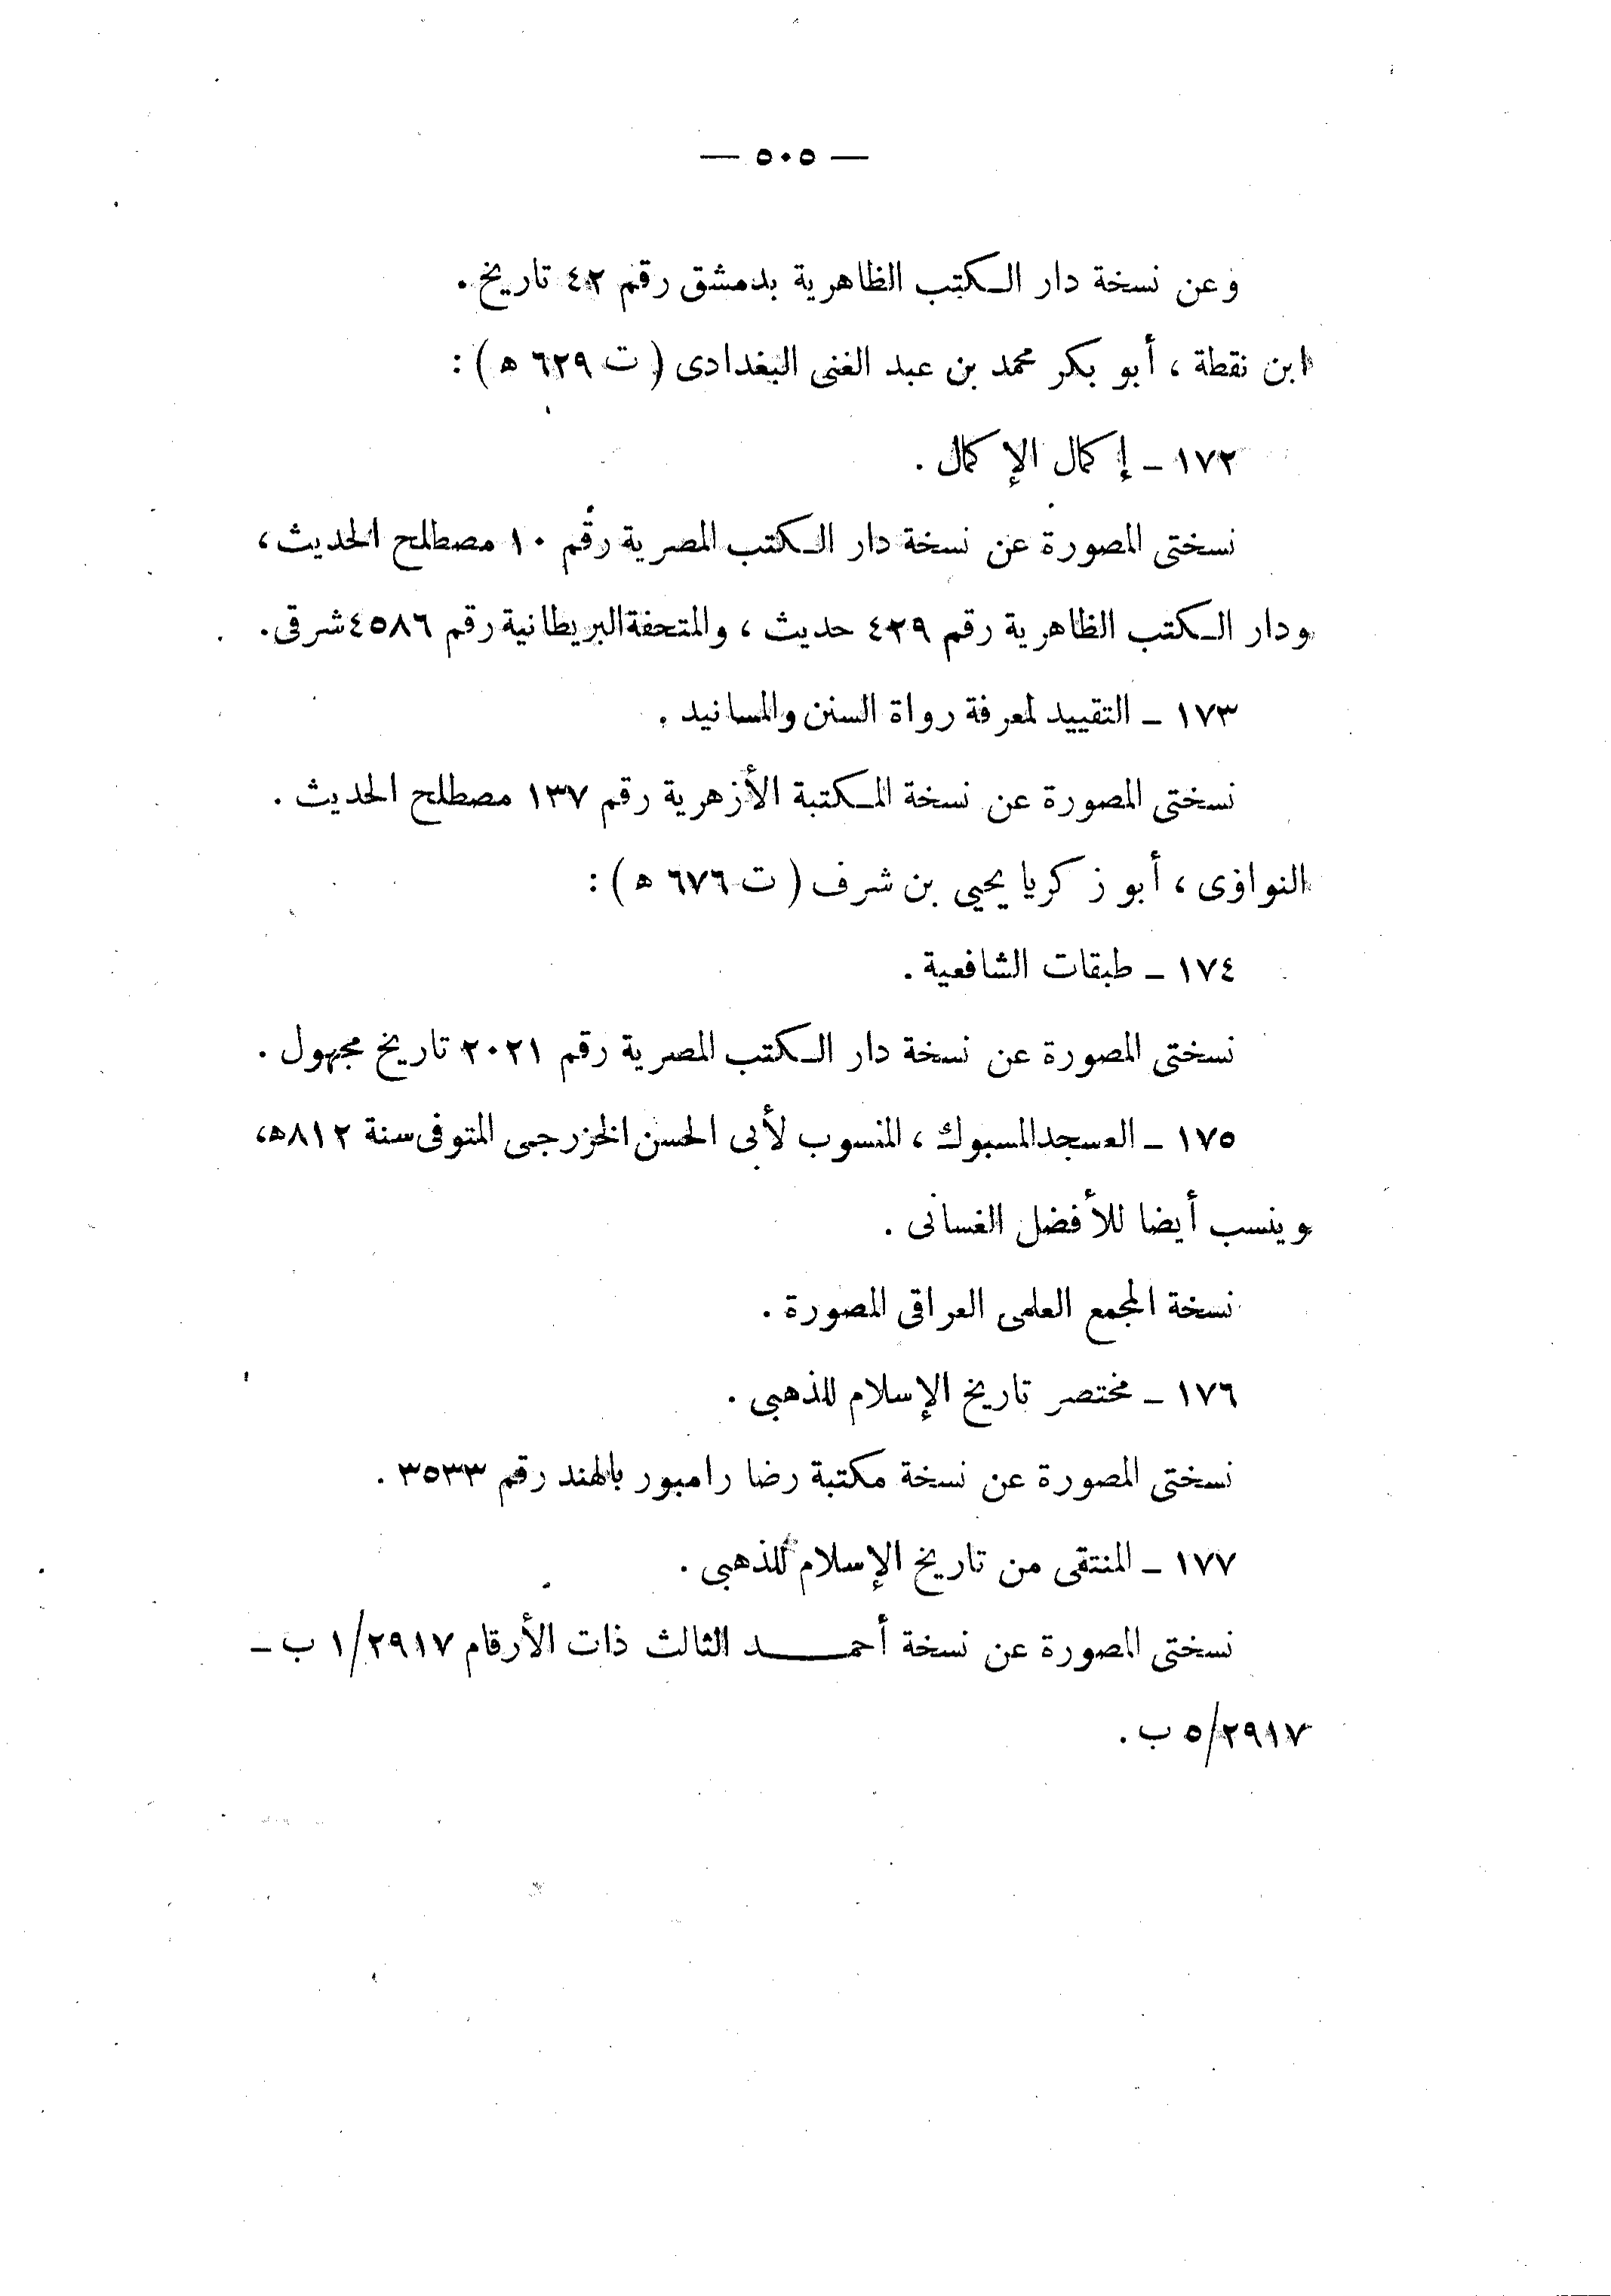 — ٥٠٥ —
وعن نسخة دار الكتب الظاهرية بدمشق رقم ٤٢ تاريخ.
ابن نقطة ، أبو بكر محمد بن عبد الغنى البغدادى ( ت ٦٢٩ ه ) :
١٧٢ – إكمال الإكمال .
نسختى المصورة عن نسخة دار الكتب المصرية رقم ١٠ مصطلح الحديث ،
ودار الكتب الظاهرية رقم ٤٢٩ حديث ، والمتحفة البريطانية رقم ٤٥٨٦ شرقى .
١٧٣ – التقييد لمعرفة رواة السنن والمسانيد .
نسختى المصورة عن نسخة المكتبة الأزهرية رقم ١٣٧ مصطلح الحديث .
النواوى ، أبو زكريا يحيى بن شرف ( ت ٦٧٦ ه ) :
١٧٤ – طبقات الشافعية .
نسختى المصورة عن نسخة دار الكتب المصرية رقم ٢٠٢١ تاريخ مجهول .
١٧٥ – العسجد المسبوك ، المنسوب لأبى الحسن الخزرجى المتوفى سنة ٨١٢ه ،
وينسب أيضا للأفضل الغسانى .
نسخة المجمع العلمى العراقى المصورة .
١٧٦ – مختصر تاريخ الإسلام للذهبى .
نسختى المصورة عن نسخة مكتبة رضا رامبور بالهند رقم ٣٥٣٣ .
١٧٧ – المنتقى من تاريخ الإسلام للذهبى .
نسختى المصورة عن نسخة أحمد الثالث ذات الأرقام ٢٩١٧/١ ب –
٢٩١٧/٥ ب .